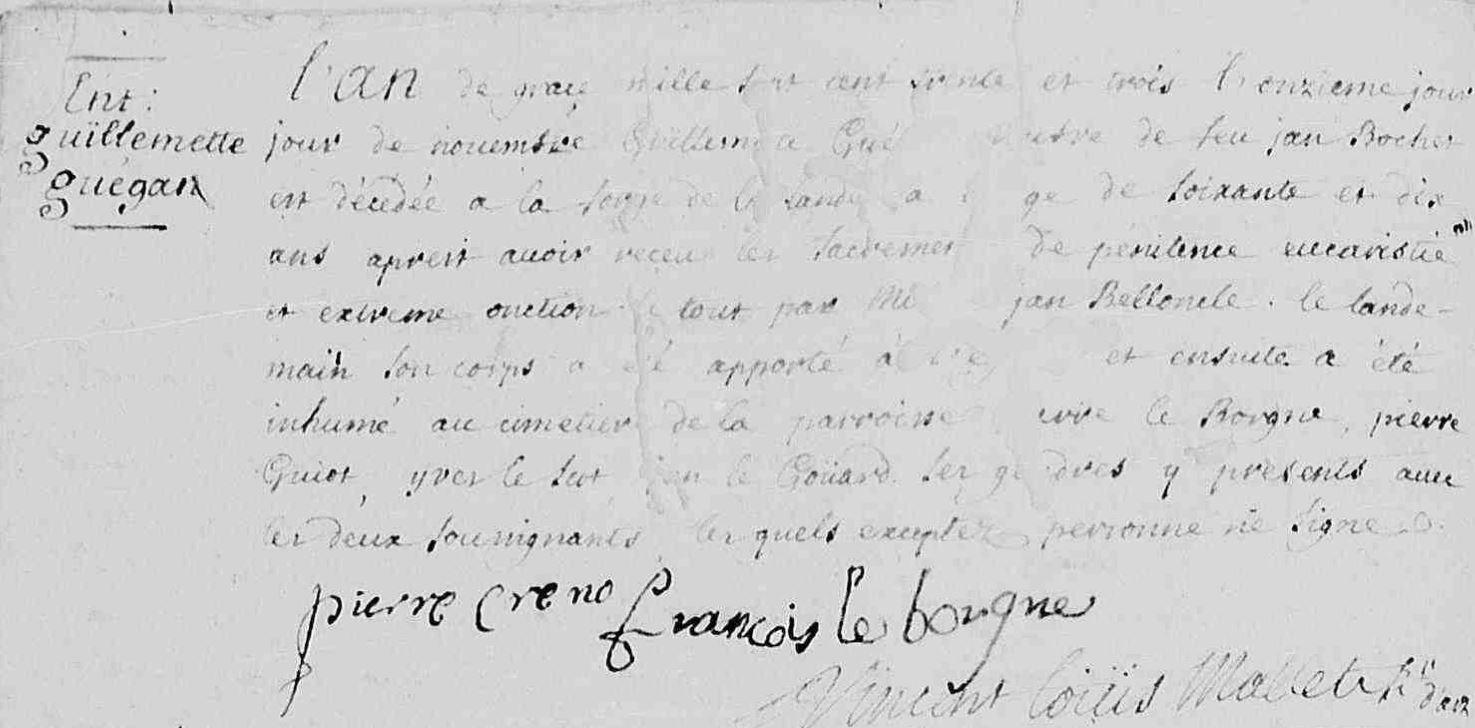 Ent:
guillemette
guégan
l'an de grace mille sept cent trente et trois l'onzieme jour
jour de nouembre Guillemette Gué de feu jan Bocher
est décédée a la de la lande a ge de soixante et dix
ans apreit auoir receu les sacremens de penitence eucaristie
et extreme onction le tout par jan Belloncle. le lande-
main son corps a été apporté et ensuite a été
inhumé au cimetiere de la parroisse le Borgne, pierre
Guiot, yves le le Goüard ses gendres y presents auec
les deux soussignants, les quels exceptez personne ne signe
pierre Creno françois le borgne
Vincent Loüis Mallet